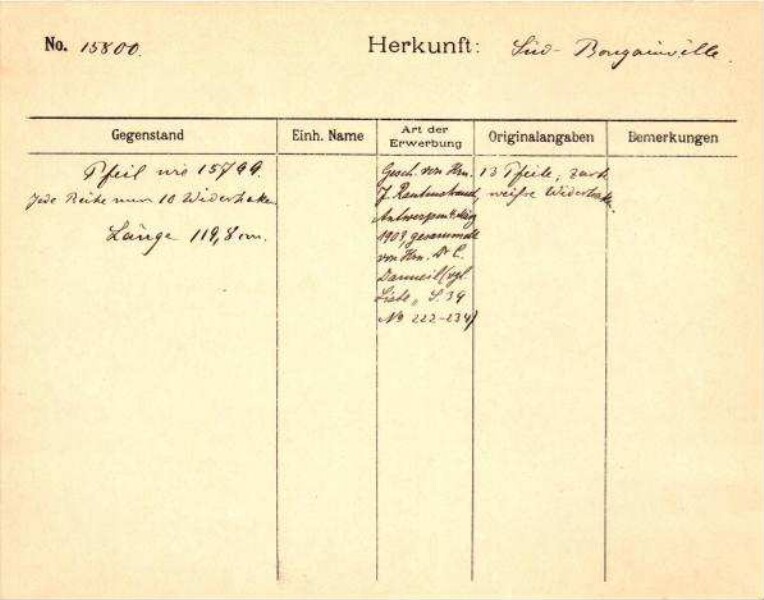 No. 15800.
Herkunft: Süd-Bougainville.
Gegenstand
Einh. Name
Art der Erwerbung
Originalangaben
Bemerkungen
Pfeil wie 15799.
Jede Reihe nur 10 Widerhaken.
Länge 119,8 cm.
Gesch. von Hrn.
J. Rautenstrauch,
Antwerpen, März
1909, gesammelt
von Hrn. Dr C.
Danneil (vgl.
Liste, S. 39
No 222-234)
13 Pfeile,
weisse Widerhaken.